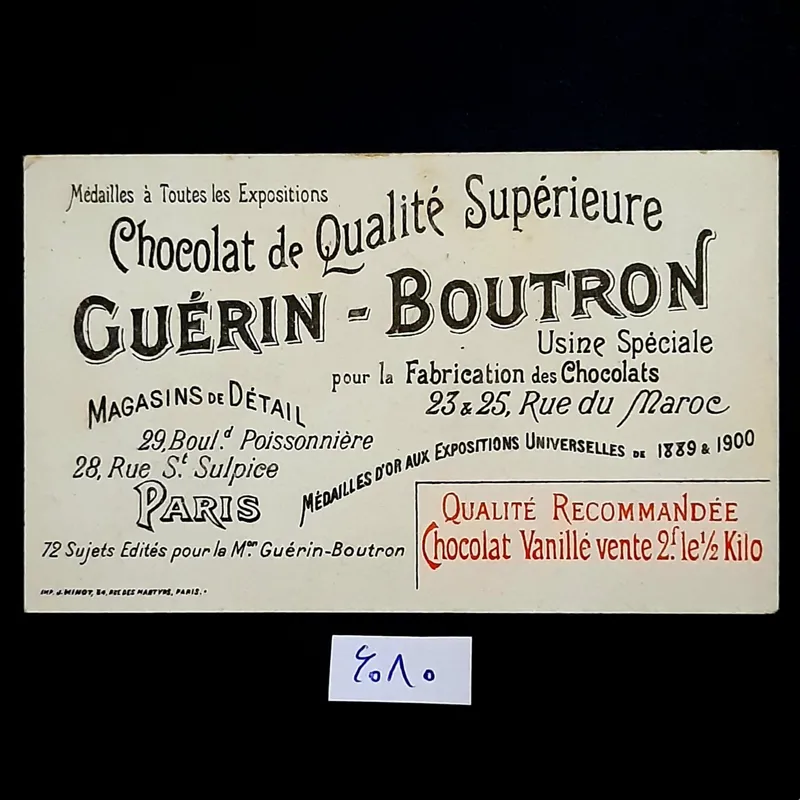 Médailles à Toutes les Expositions
Chocolat de Qualité Supérieure
GUÉRIN - BOUTRON
Usine Spéciale
pour la Fabrication des Chocolats
23 & 25, Rue du Maroc
MAGASINS DE DÉTAIL
29, Boul.d Poissonnière
28, Rue St Sulpice
PARIS
MÉDAILLES D'OR AUX EXPOSITIONS UNIVERSELLES DE 1889 & 1900
72 Sujets Edités pour la Mon Guérin-Boutron
QUALITÉ RECOMMANDÉE
Chocolat Vanillé vente 2.f le ½ Kilo
IMP. J. MINOT, 34, RUE DES MARTYRS, PARIS.